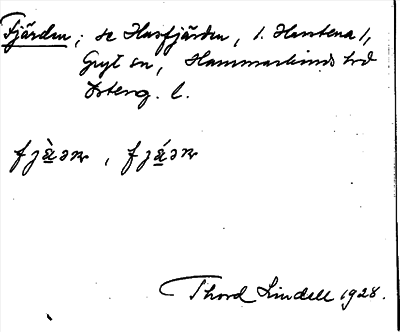 Fjärden; se Hasfjärden, 1. Hästena/,
Gryt sn, Hammarkinds hd
Österg. l.
fjä̀ən, fjä́ən
Thord Lindell 1928.